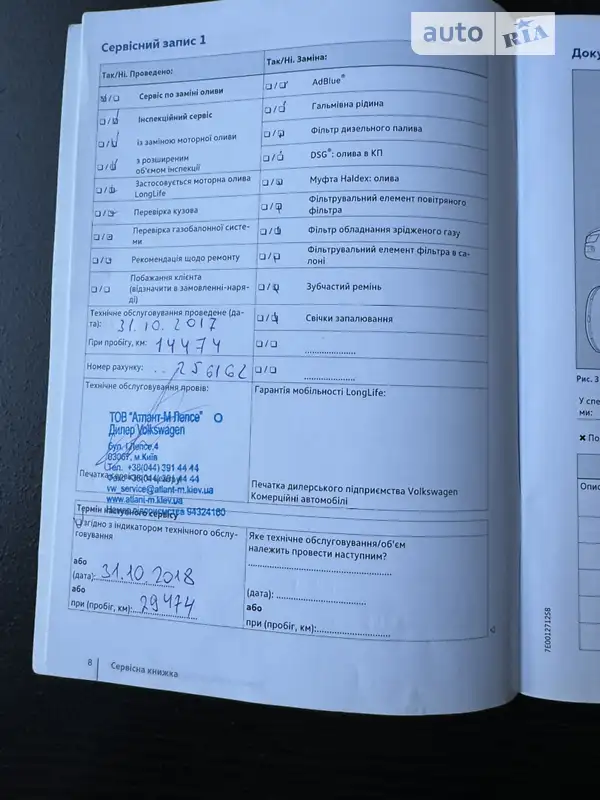 auto RIA
Сервісний запис 1
Так/Ні. Проведено:
Сервіс по заміні оливи
Інспекційний сервіс
із заміною моторної оливи
з розширеним
об'ємом інспекції
Застосовується моторна олива
LongLife
Перевірка кузова
Перевірка газобалонної систе-
ми
Рекомендація щодо ремонту
Побажання клієнта
(відзначити в замовленні-наря-
ді)
Так/Ні. Заміна:
AdBlue®
Гальмівна рідина
Фільтр дизельного палива
DSG®: олива в КП
Муфта Haldex: олива
Фільтрувальний елемент повітряного
фільтра
Фільтр обладнання зрідженого газу
Фільтрувальний елемент фільтра в са-
лоні
Зубчастий ремінь
Свічки запалювання
Технічне обслуговування проведене (да-
та): 31.10.2017
При пробігу, км: 14474
Номер рахунку: 256162
Технічне обслуговування провів:
ТОВ "Атлант-М Лепсе"
Дилер Volkswagen
бул. І.Лепсе,4
03067, м.Київ
Тел. +38(044) 391 44 44
Факс +38(044) 391 44 44
vw_service@atlant-m.kiev.ua
www.atlant-m.kiev.ua
Номер підприємства 94324160
Гарантія мобільності LongLife:
Печатка дилерського підприємства Volkswagen
Комерційні автомобілі
Термін наступного сервісу
Згідно з індикатором технічного обслу-
говування
або
(дата): 31.10.2018
або
при (пробіг, км): 29474
Яке технічне обслуговування/об'єм
належить провести наступним?
(дата):
або
при (пробіг, км):
8 Сервісна книжка
7E0012712SB
Доку
Рис. 3
У спе
ми:
✖ По
Опис